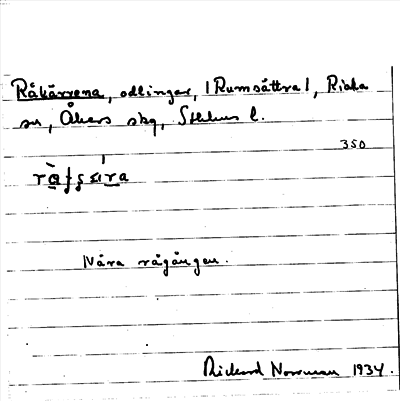 Råkärrena, odlingar, |Rumsättra|, Riala
sn, Åkers skg, Sthlms l.
350
Nära rågången.
Rickard Norrman 1934.